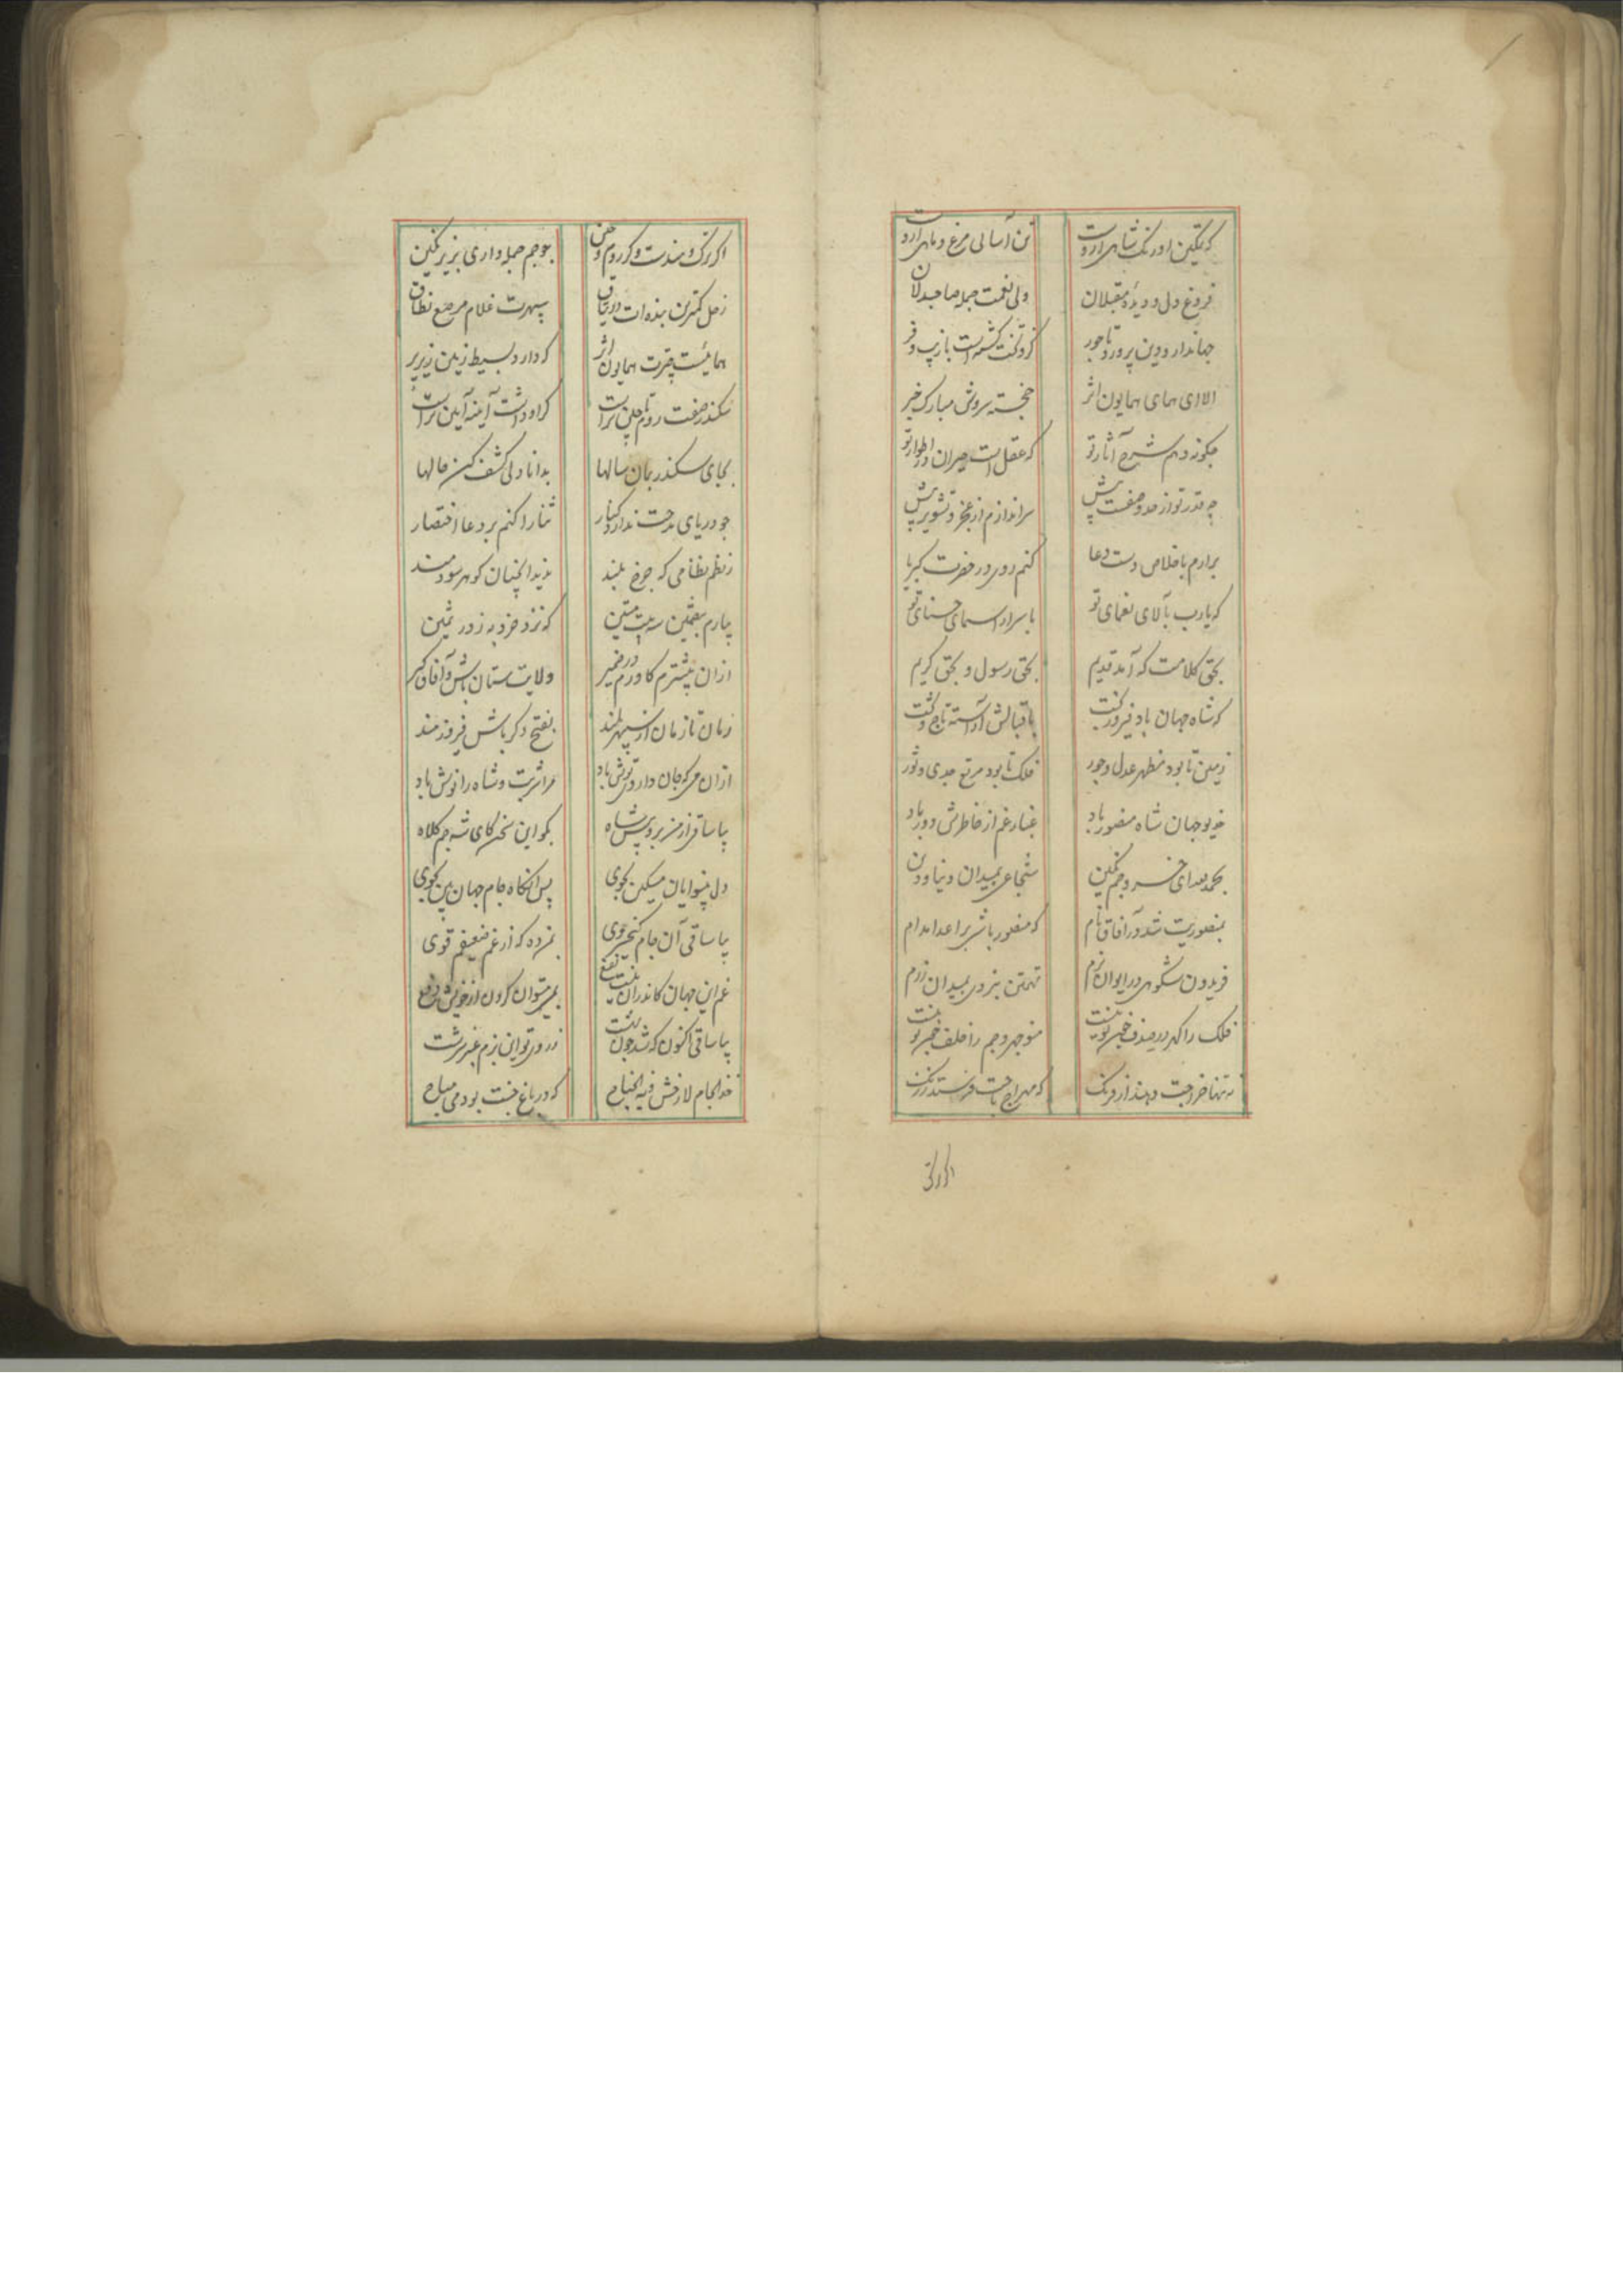 که تمکین اورنگ شاهی ازوست تن آسانی مرغ و ماهی ازوست
فروغ دل و دیدهٔ مقبلان ولی نعمت جمله صاحبدلان
جهاندار و دین پرور و تاجور کزو تخت کی گشته است بازیب و فر
الا ای همای همایون اثر خجسته سروش مبارک خبر
چگونه دهم شرح آثار تو که عقل است حیران در اطوار تو
چو قدر تو از حد وصفست بیش سر اندازم از عجز و تشویر پیش
برآرم باخلاص دست دعا کنم روی در حضرت کبریا
که یارب بآلای نعمای تو باسرار اسمای حسنای تو
بحق کلامت که آمد قدیم بحق رسول و بحق کریم
که شاه جهان باد فیروزبخت باقبالش آراسته تاج و تخت
زمین تا بود مظهر عدل و جور فلک تا بود مرتع جدی و ثور
خدیو جهان شاه منصور باد غبار غم از خاطرش دور باد
بحمدالله ای خسرو جم نگین شجاعی بمیدان دنیا و دین
بمنصوریت شد در آفاق نام که منصور باشی بر اعدا مدام
فریدون شکوهی در ایوان بزم تهمتن نبردی بمیدان رزم
فلک را گهر در صدف چون تو نیست منوچهر و جم را خلف چون تو نیست
نه تنها خراجت دهند از فرنگ که مهراج باجت فرستد ز زنگ
اگر ترک
اگر ترک و هندست و گر روم و چین چو جم جمله داری بزیر نگین
زحل کمترین بنده‌ات در وثاق سپهرت غلام مرصع نطاق
همائیست چترت همایون اثر که دارد بسیط زمین زیر پر
سکندر صفت روم تا چین تراست گر او داشت آیینه آیین تراست
بجای سکندر بمان سالها بدانا دلی کشف کن حالها
چو دریای مدحت ندارد کنار ثنا را کنم بر دعا اختصار
ز نظم نظامی که چرخ بلند ندیدانچنان گوهر سودمند
بیارم بتضمین سه بیت متین که نزد خرد به ز در ثمین
ازان بیشترم کاوری در ضمیر ولایت ستان باش و آفاق گیر
زمان تا زمان از سپهر بلند بفتح دگر باش فیروزمند
ازان می که جان داروی هوش باد مرا شربت و شاه را نوش باد
بیا ساقی از من برو پیش شاه بگو این سخن کای شه جم کلاه
دل بینوایان مسکین بجوی پس آنگاه جام جهان بین بجوی
بیا ساقی آن جام کیخسروی بمن ده که از غم ضعیفم قوی
غم این جهان کاندران نیست نفع بمی میتوان کردن از خویش دفع
بیا ساقی اکنون که شد چون بهشت ز روی تو این بزم عنبر سرشت
خذ الجام لا تخش فیه الجناح که در باغ جنت بود می مباح